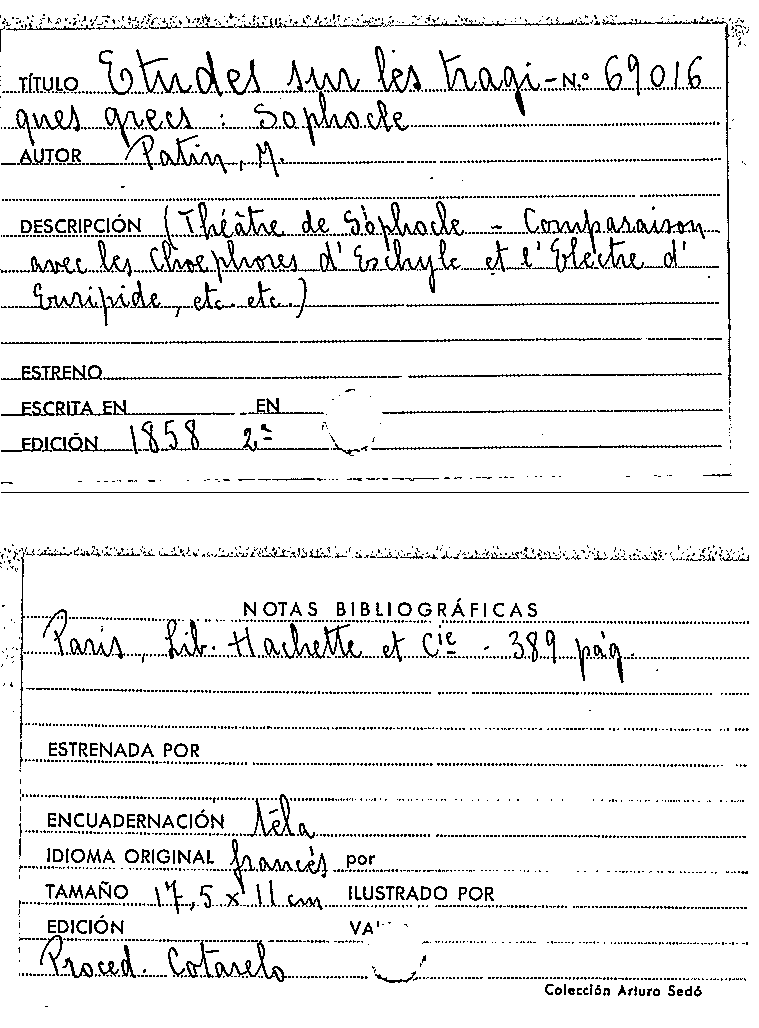 TÍTULO Etudes sur les tragi- N.º 69016
ques grecs : Sophocle
AUTOR Patin, M.
DESCRIPCIÓN (Théâtre de Sophocle - Comparaison
avec les Choephores d'Eschyle et l'Electre d'
Euripide, etc. etc.)
ESTRENO
ESCRITA EN EN
EDICIÓN 1858 2ª
NOTAS BIBLIOGRÁFICAS
Paris, Lib. Hachette et Cie - 389 pág.
ESTRENADA POR
ENCUADERNACIÓN téla
IDIOMA ORIGINAL francés por
TAMAÑO 17,5 x 11 cm ILUSTRADO POR
EDICIÓN
Proced. Cotarelo
Colección Arturo Sedó